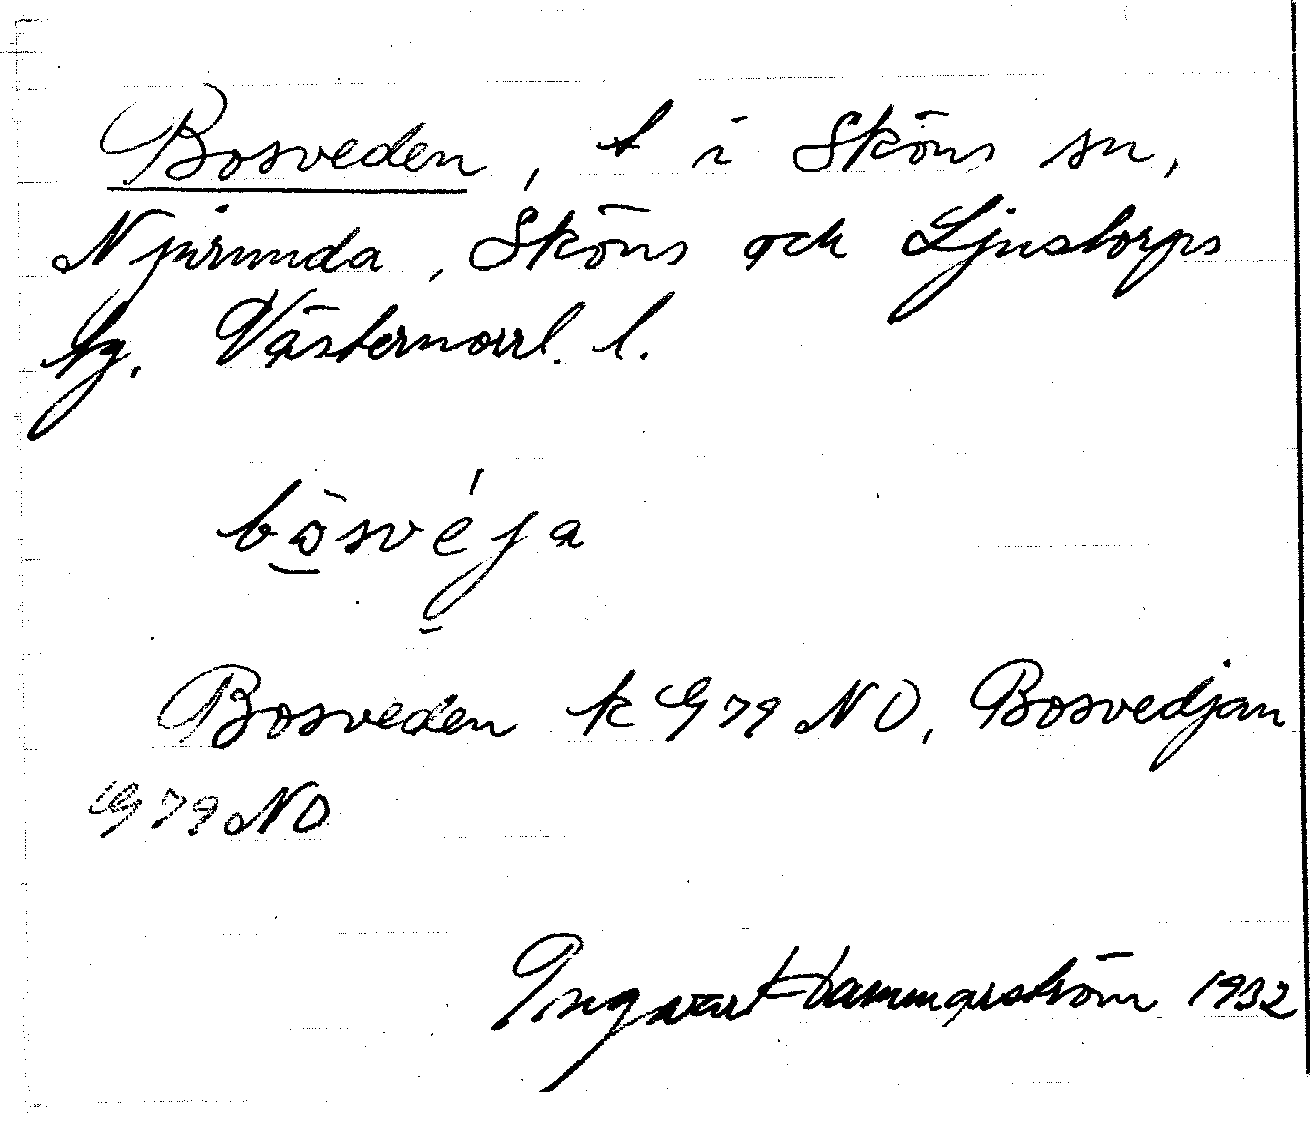 Bosveden, t i Sköns sn,
Njurunda, Sköns och Ljustorps
tg. Västernorrl. l.
bòsvéja
Bosveden k G 79 NO, Bosvedjan
G 79 NO
Ingvar Hammarström 1932